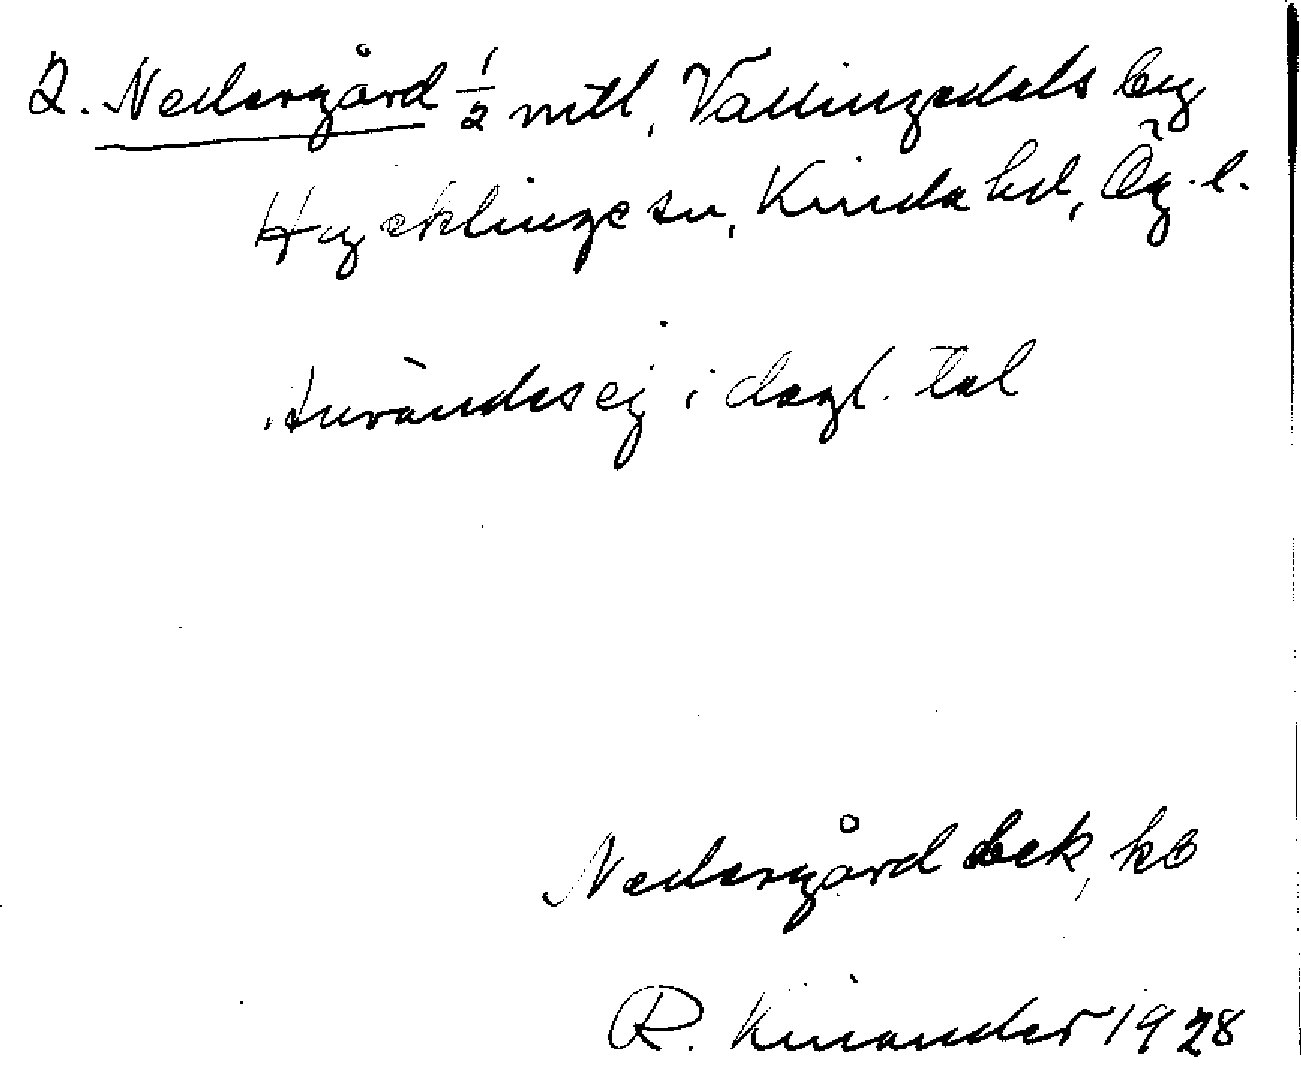 2. Nedergård 1/2 mtl, Vallingedals by
Hycklinge sn, Kinda hd, Ög. l.
Användes ej i dagl. tal
Nedergård bek, kb
R. Kinander 1928